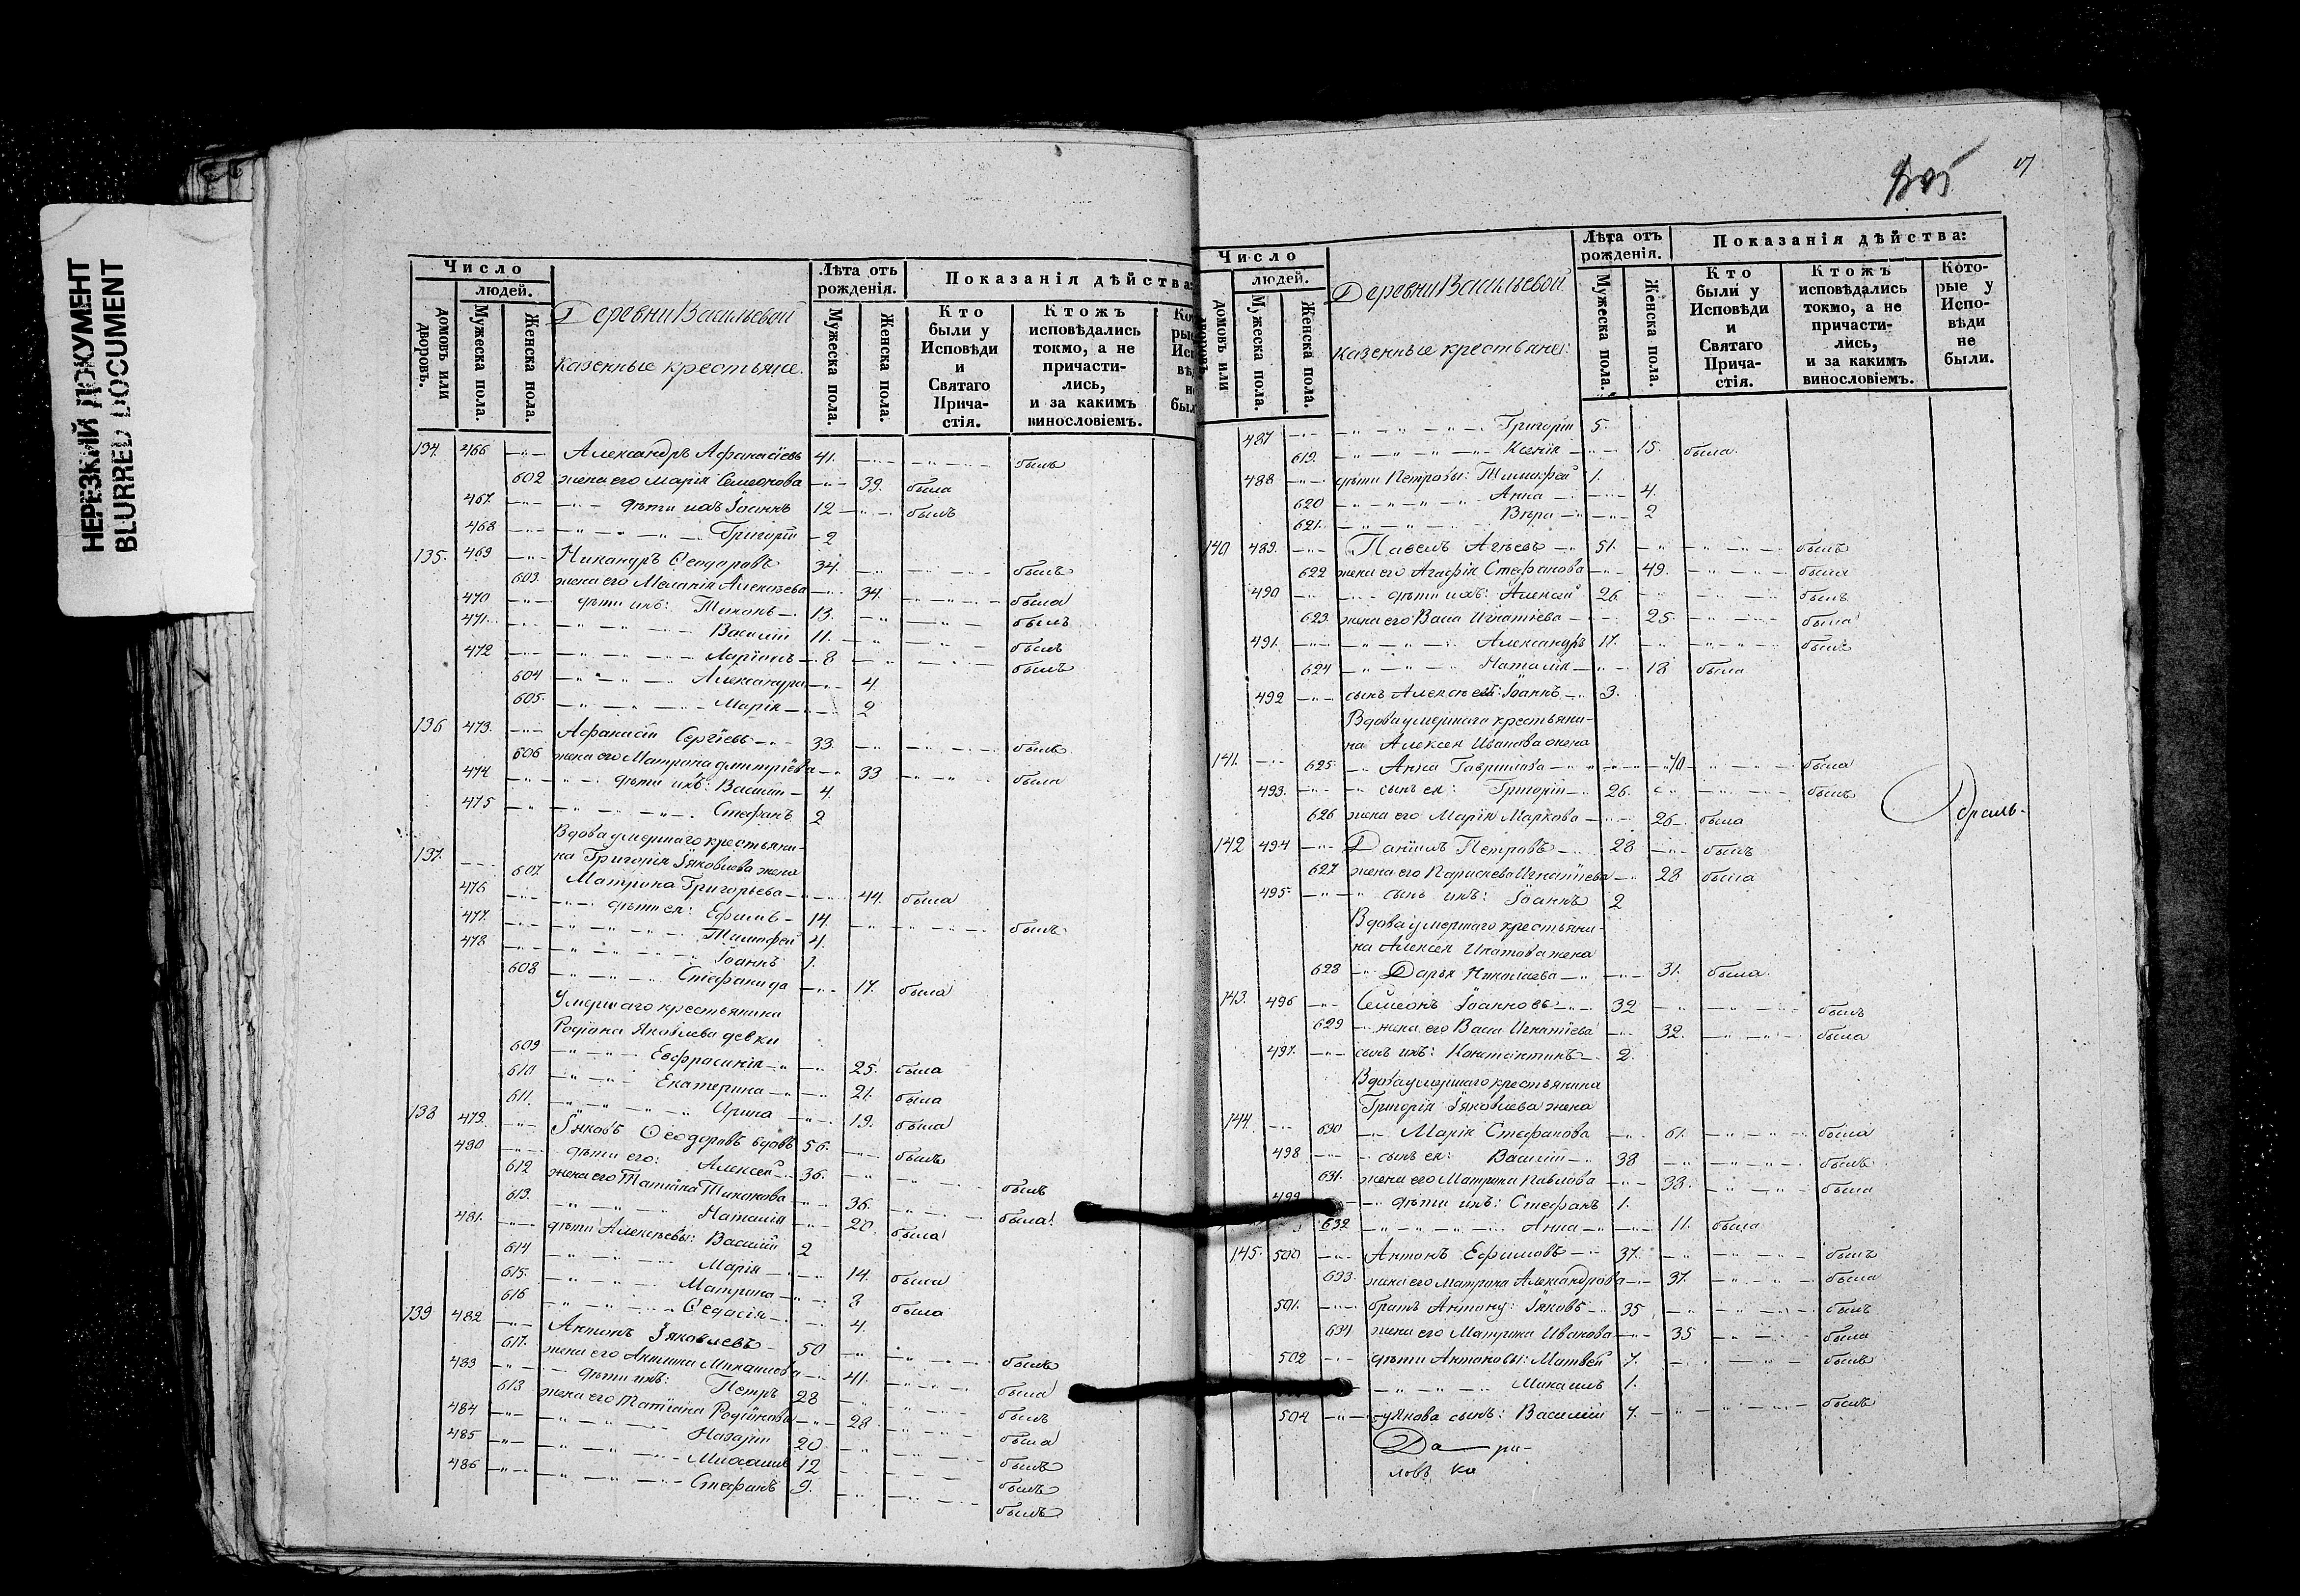 НЕРЕЗКИЙ ДОКУМЕНТ
BLURRED DOCUMENT
Число
людей.
домовъ или дворовъ.
Мужеска пола.
Женска пола.
Деревни Васильевой
казенные крестьяне.
Лѣта отъ рожденія.
Мужеска пола.
Женска пола.
Показанія дѣйства:
Кто были у Исповѣди и Святаго Причастія.
Ктожъ исповѣдались токмо, а не причастились, и за какимъ винословіемъ.
134. 466 Александръ Афанасіевъ 41. былъ
602 жена его Марія Семеонова 39. была
467. дѣти ихъ Іоаннъ 12 былъ
468 Григорій 2
135. 469 Никандръ Ѳеодоровъ 34. былъ
603. жена его Меланія Алексѣева 34. была
470 дѣти ихъ: Тихонъ 13. былъ
471. Василій 11. былъ
472 Ларіонъ 8 былъ
604 Александра 4.
605. Марія 2
136 473. Афанасій Сергіевъ 33. былъ
606 жена его Матрона Димитріева 33 была
474 дѣти ихъ: Василій 4.
475 Стефанъ 2
Вдова умершаго крестьяни-
137. на Григорія Іяковлева жена
607 Матрона Григорьева 44. была
476 дѣти ея: Ефимъ 14. былъ
477. Тимофей 4.
478 Іоаннъ 1.
608 Стефанида 17. была
Умершаго крестьянина
Родіона Яковлева девки
609 Евфросинія 25. была
610 Екатерина 21. была
611. Ирина 19. была
138 479. Іяковъ Ѳеодоровъ вдовъ 56. былъ
480 дѣти его: Алексей 36. былъ
612 жена его Татіана Тихонова 36. была
613. Наталія 20. была
481. дѣти Алексѣевы: Василій 2
614 Марія 14. была
615. Матрона 8 была
616 Ѳедосія 4.
139 482 Антипъ Іяковлевъ 50 былъ
617. жена его Михаилова 41. была
483 дѣти ихъ: Петръ 28 былъ
618 жена его Татіана Родіонова 28 была
484 Назарій 20 былъ
485 Михаилъ 12 былъ
486 Стефанъ 9. былъ
Число
людей.
домовъ или дворовъ.
Мужеска пола.
Женска пола.
Деревни Васильевой
казенные крестьяне:
Лѣта отъ рожденія.
Мужеска пола.
Женска пола.
Показанія дѣйства:
Кто были у Исповѣди и Святаго Причастія.
Ктожъ исповѣдались токмо, а не причастились, и за какимъ винословіемъ.
Которые у Исповѣди не были.
487 Григорій 5.
619. Ксенія 15. была
488 дѣти Петровы: Тимофей 1.
620 Анна 4.
621. Вѣра 2
140 489. Павелъ Агѣевъ 51. былъ
622 жена его Агафія Стефанова 49. была
490 дѣти ихъ: Алексей 26. былъ
623. жена его Васа Игнатіева 25. была
491. Александръ 17. былъ
624 Наталія 18 была
492 сынъ Алексѣевъ: Іоаннъ 3.
Вдова умершаго крестьяни-
на Алексея Иванова жена
141. 625. Анна Гаврилова 70 была
493. сынъ ея: Григорій 26. былъ
626 жена его Марія Маркова 26. была
142 494 Даніилъ Петровъ 28 былъ
627 жена его Параскева Игнатіева 28 была
495. сынъ ихъ: Іоаннъ 2
Вдова умершаго крестьяни-
на Алексея Ипатова жена
628 Дарья Николаева 31. была
143. 496 Семеонъ Іоанновъ 32 былъ
629 жена его Васа Игнатіева 32. была
497. сынъ ихъ: Константинъ 2.
Вдова умершаго крестьянина
Григорія Іяковлева жена
144. 630 Марія Стефанова 61. была
498 сынъ ея: Василій 38 былъ
631. жена его Матрона Павлова 38. была
499 дѣти ихъ: Стефанъ 1.
632 Анна 11. была
145. 500 Антонъ Ефимовъ 37. былъ
633. жена его Матрона Александрова 37. была
501. братъ Антону: Іяковъ 35 былъ
634 жена его Матрона Иванова 35 была
502 дѣти Антоновы: Матвей 7. былъ
Михаилъ 1.
504 у Якова сынъ: Василій 7. былъ
Да ри-
ловъ ка